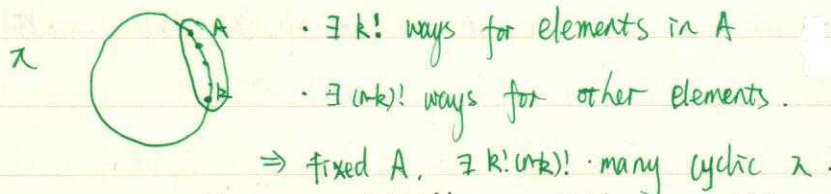 π
A
k
· ∃ k! ways for elements in A
· ∃ (n-k)! ways for other elements.
⇒ fixed A, ∃ k!(n-k)! · many cyclic π